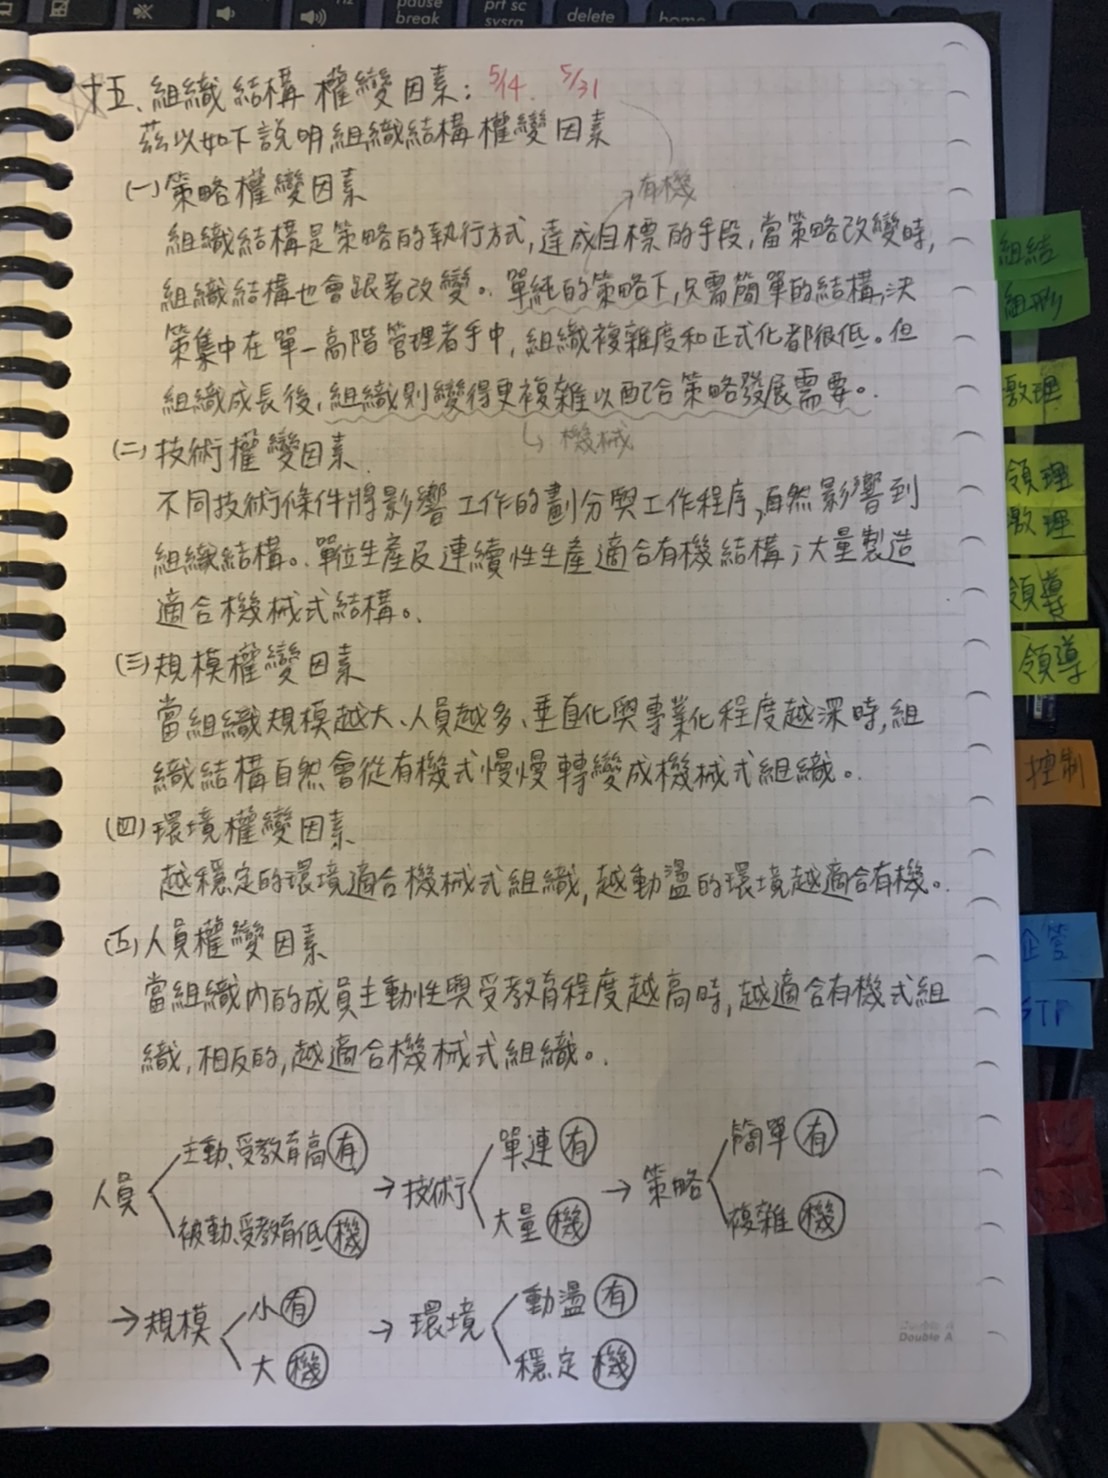 pause
break
prt sc
sysrq
delete
home
十五、組織結構權變因素: 5/14. 5/31
茲以如下說明組織結構權變因素
(一)策略權變因素
有機
組織結構是策略的執行方式,達成目標的手段,當策略改變時,
組織結構也會跟著改變。單純的策略下,只需簡單的結構,決
策集中在單一高階管理者手中,組織複雜度和正式化都很低。但
組織成長後,組織則變得更複雜以配合策略發展需要。
機械
(二)技術權變因素
不同技術條件將影響工作的劃分與工作程序,自然影響到
組織結構。單位生產及連續性生產適合有機結構;大量製造
適合機械式結構。
(三)規模權變因素
當組織規模越大、人員越多、垂直化與專業化程度越深時,組
織結構自然會從有機式慢慢轉變成機械式組織。
(四)環境權變因素
越穩定的環境適合機械式組織,越動盪的環境越適合有機。
(五)人員權變因素
當組織內的成員主動性與受教育程度越高時,越適合有機式組
織,相反的,越適合機械式組織。
人員 主動、受教育高 有
被動、受教育低 機
→技術 單、連 有
大量 機
→策略 簡單 有
複雜 機
→規模 小 有
大 機
→環境 動盪 有
穩定 機
Double A
組結
組形
激理
領理
激理
領導
領導
控制
企管
STP